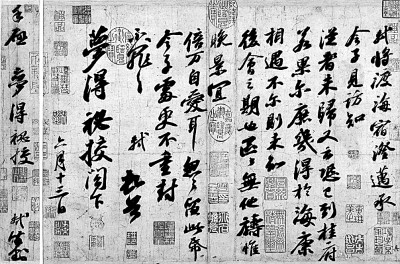 軾將渡海宿澄邁承
令子見訪知
從者未歸又云恐已到桂府
若果爾庶幾得於海康
相遇不爾則未知
後會之期也區區無他禱惟
晚景宜
倍萬自愛耳匆匆留此帋
令子處更不重封
不罪不罪
軾頓首
夢得秘校閣下
六月十三日
手啓 夢得秘校
軾封